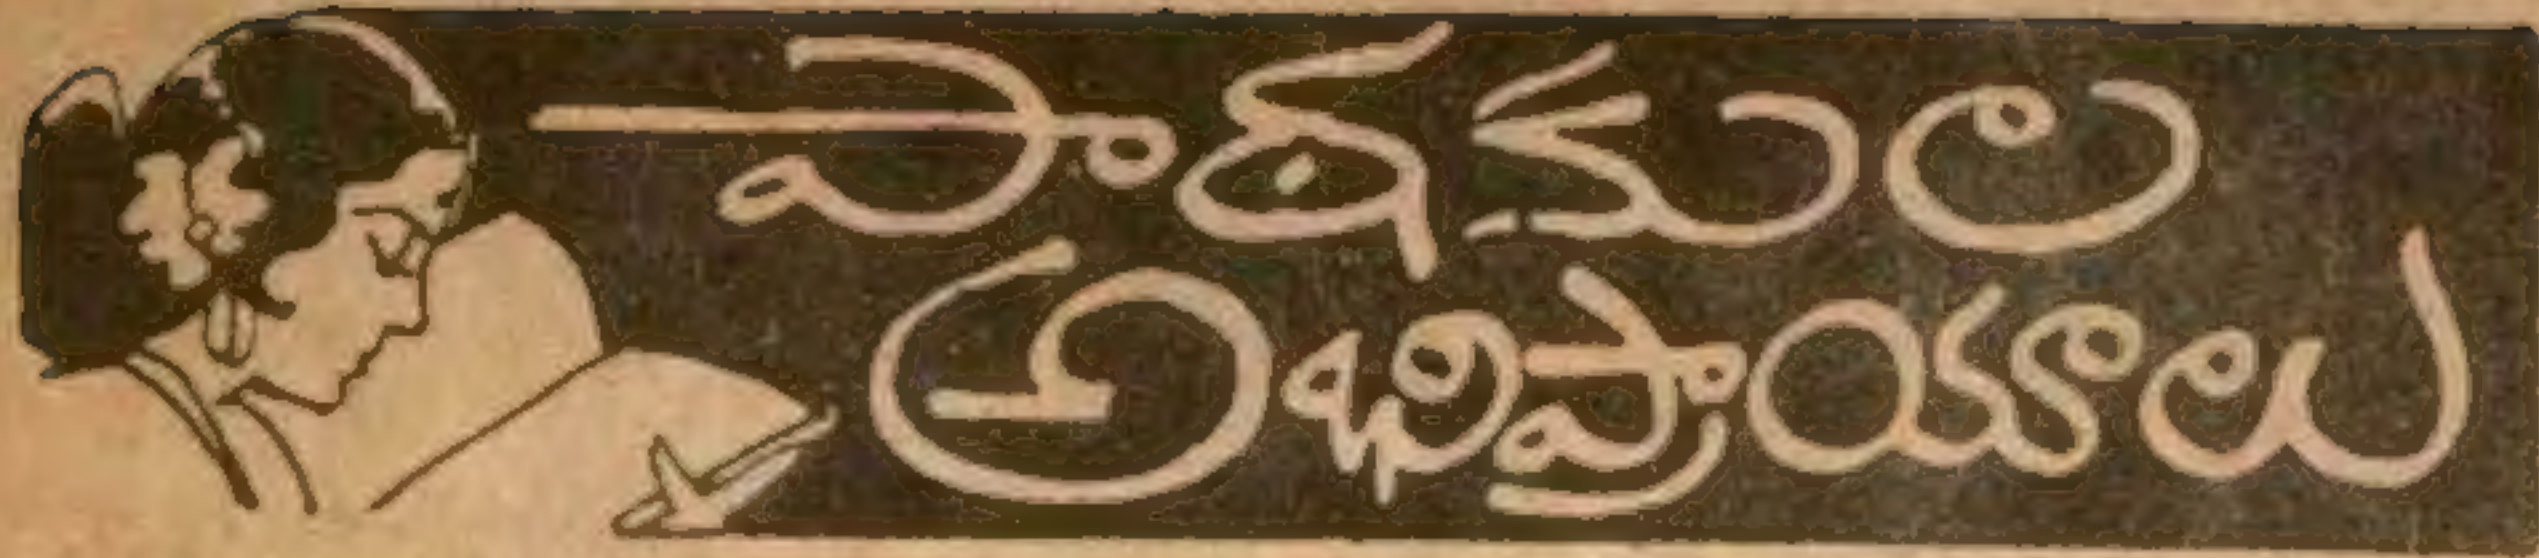 పాఠకుల
అభిప్రాయాలు